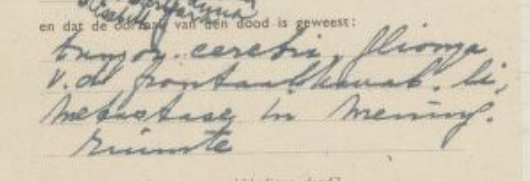 en dat de oorzaak van den dood is geweest:
tumor cerebri, glioma
v.d. frontaalkwab. li,
metastase in mening.
ruimte